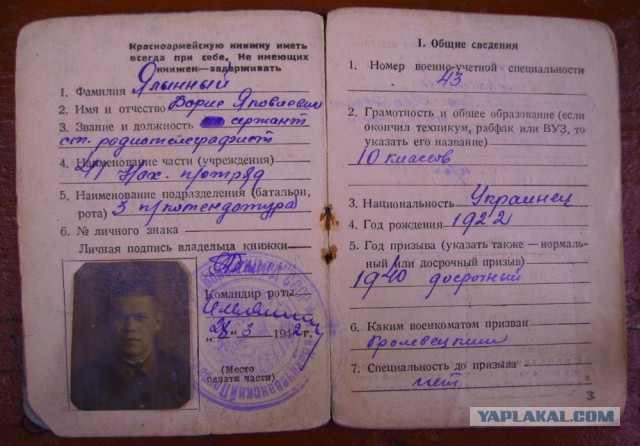 Красноармейскую книжку иметь
всегда при себе. Не имеющих
книжек—задерживать
1. Фамилия Ялынный
2. Имя и отчество Борис Яковлевич
3. Звание и должность сержант
ст. радиотелеграфист
4. Наименование части (учреждения)
Нах. п/отряд
5. Наименование подразделения (батальон,
рота) 3 п/комендатура
6. № личного знака
Личная подпись владельца книжки—
Командир роты
„28“ 3 1942г.
(Место
печати части)
I. Общие сведения
1. Номер военно-учетной специальности
43
2. Грамотность и общее образование (если
окончил техникум, рабфак или ВУЗ, то
указать его название)
10 классов
3. Национальность Украинец
4. Год рождения 1922
5. Год призыва (указать также — нормаль-
ный или досрочный призыв)
1940 досрочный
6. Каким военкоматом призван
Кролевецким
7. Специальность до призыва
нет
3
YAPLAKAL.COM